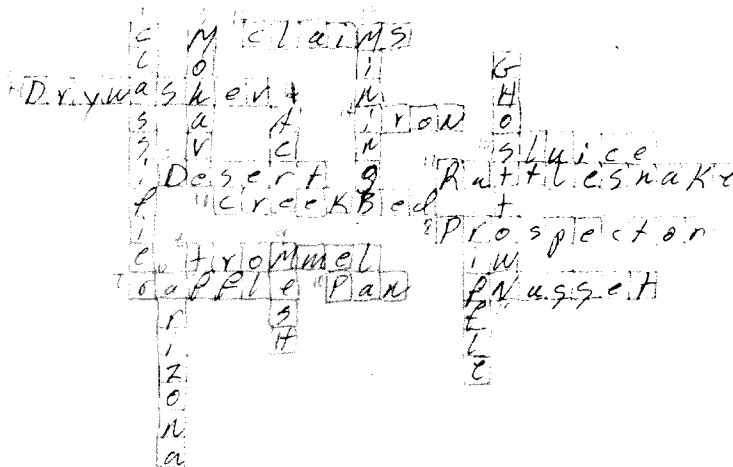 claiMS
Drywashert
iron
sluice
Desert
Rattlesnake
creekBed
Prospector
troMmel
raffle
Pan
Nugget
classifier
Mohave
MiNing
GHosttowN
Acre
MesH
arizona
riffle